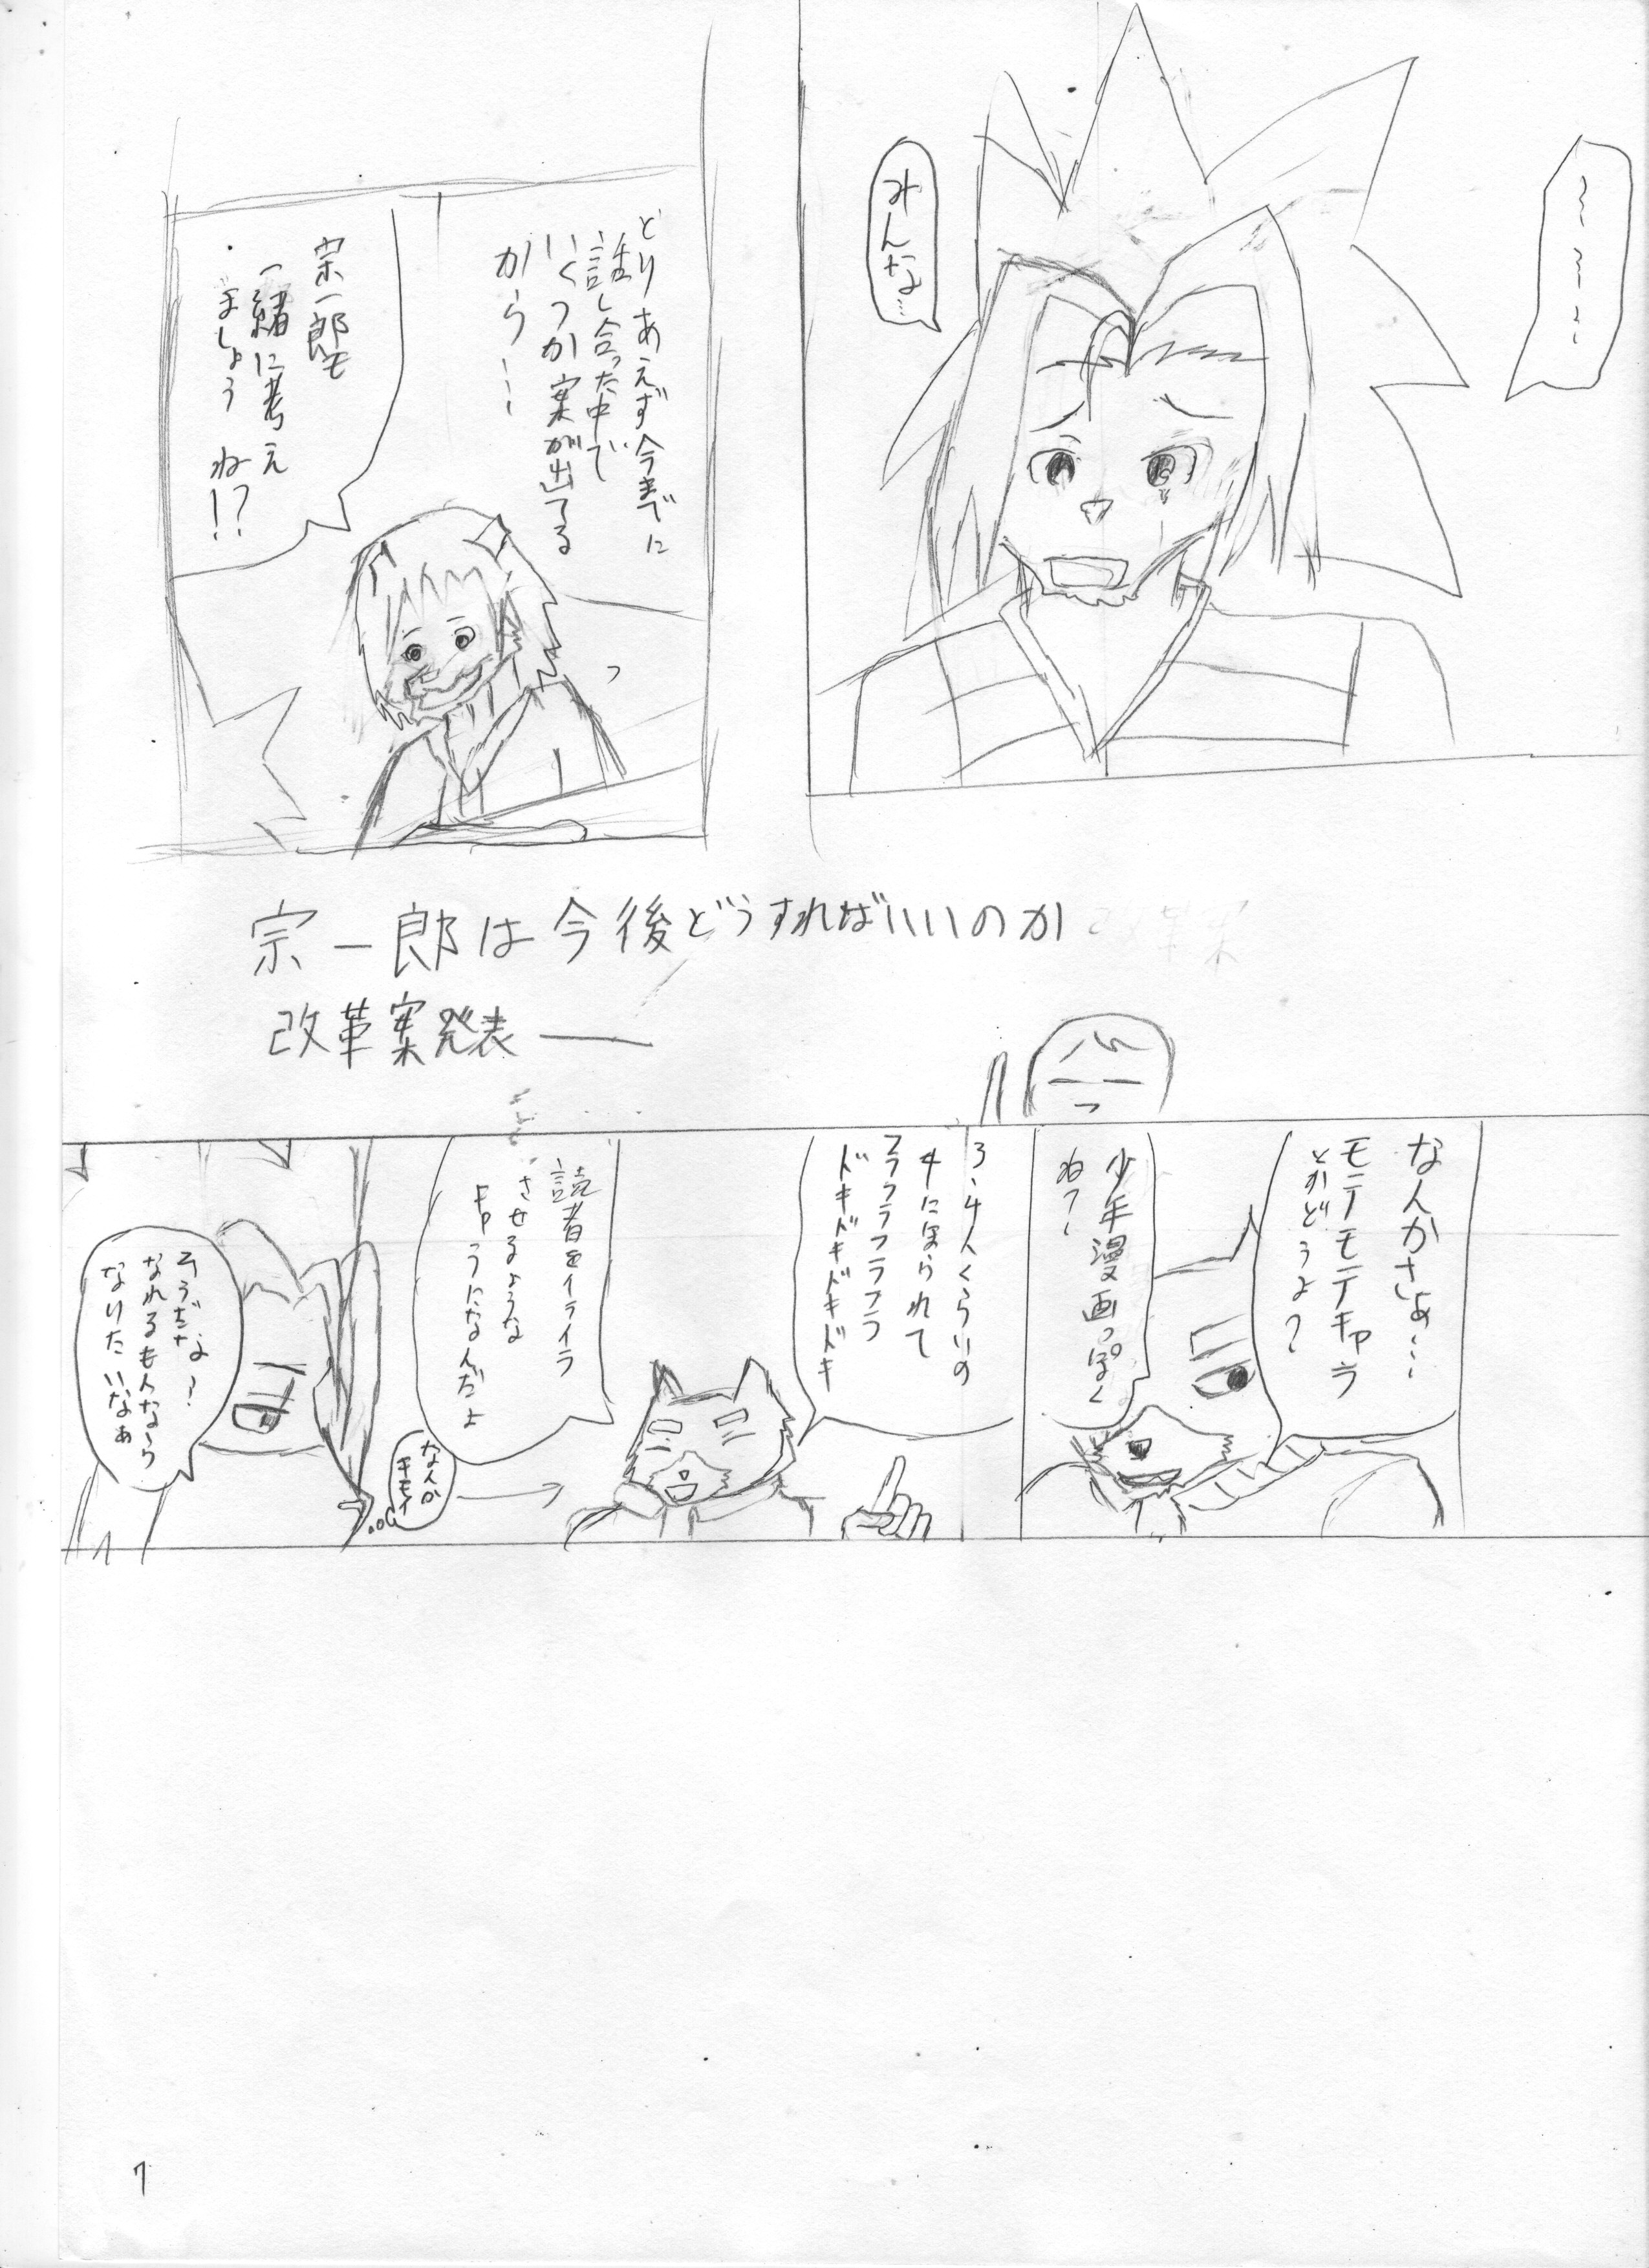 みんな…
とりあえず今までに
話し合った中で
いくつか案が出てる
から…
宗一郎も
一緒に考え
ましょう ね!?
宗一郎は今後どうすればいいのか
改革案発表―
なんかさぁ…
モテモテキャラ
とかどうよ?
少年漫画っぽく
ね?
3、4人くらいの
女にほられて
フラフラフラフラ
ドキドキドキドキ
読者をイライラ
させるような
キャラになんだよ
なんか
キモイ
そうだな?
なれるもんなら
なりたいなぁ
7